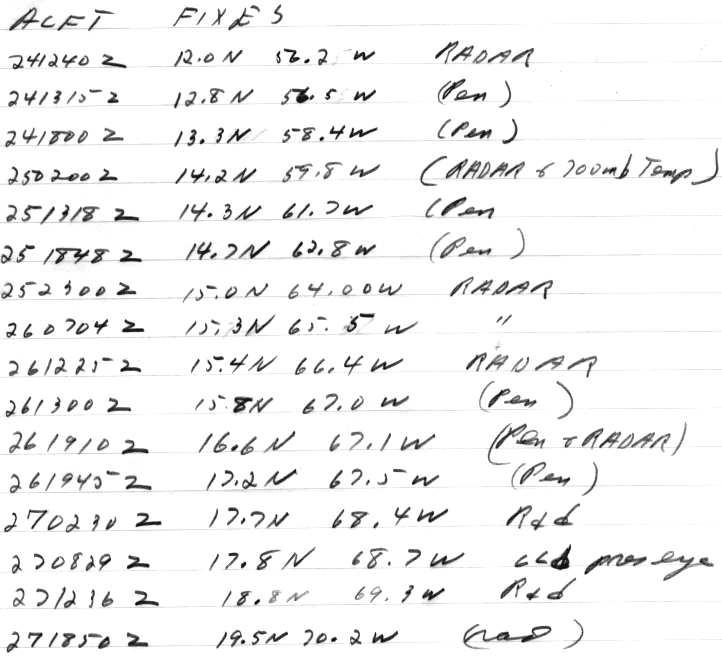 ACFT FIXES
241240 Z 12.0 N 56.2 W RADAR
241315 Z 12.8 N 56.5 W (Pen)
241800 Z 13.3 N 58.4 W (Pen)
250200 Z 14.2 N 59.8 W (RADAR & 700mb Temp)
251318 Z 14.3 N 61.7 W (Pen
251848 Z 14.7 N 62.8 W (Pen)
252300 Z 15.0 N 64.00 W RADAR
260704 Z 15.3 N 65.5 W "
261225 Z 15.4 N 66.4 W RADAR
261300 Z 15.8 N 67.0 W (Pen)
261910 Z 16.6 N 67.1 W (Pen & RADAR)
261945 Z 17.2 N 67.5 W (Pen)
270230 Z 17.7 N 68.4 W Rad
270829 Z 17.8 N 68.7 W pres eye
271236 Z 18.8 N 69.3 W Rad
271850 Z 19.5 N 70.2 W (rad)